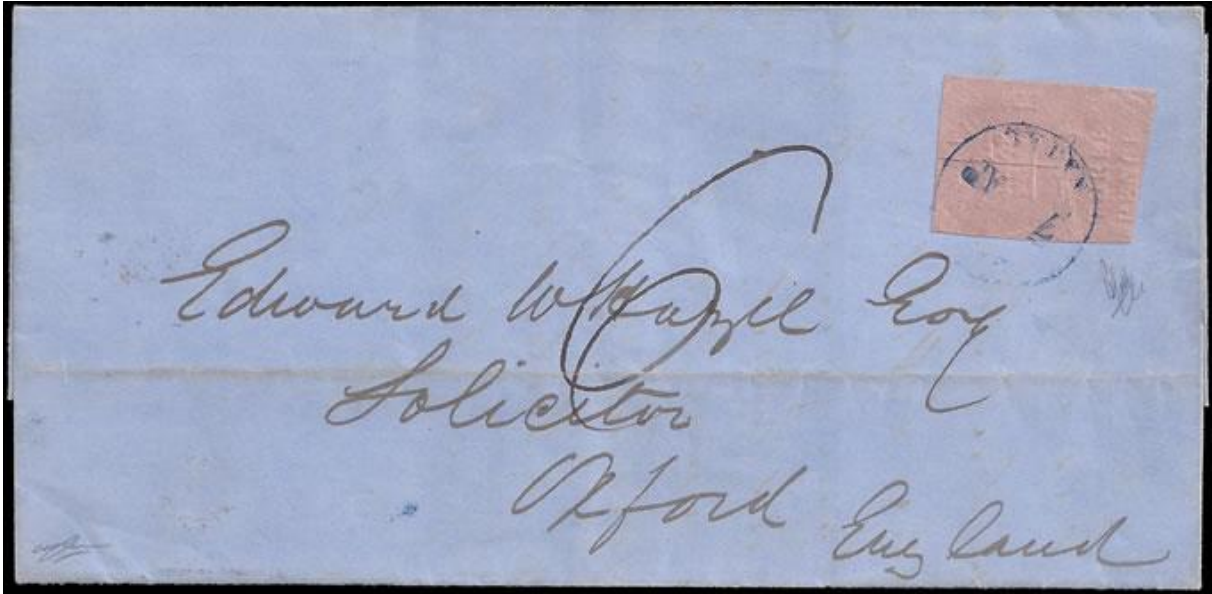 6
Edward W Hazell Esq
Solicitor
Oxford
England